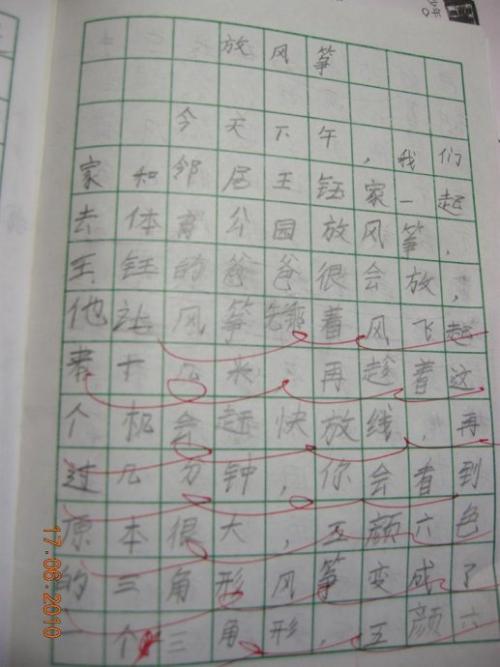 放风筝
今天下午，我们
家和邻居王钰家一起
去体育公园放风筝．
王钰的爸爸很会放，
他 风筝 着风飞起
来十几米 再趁着这
个机会赶快放线，再
过几分钟，你会看到
原本很大，五颜六色
的三角形风筝变成了
一个 三角形．五颜六
17.06.2010